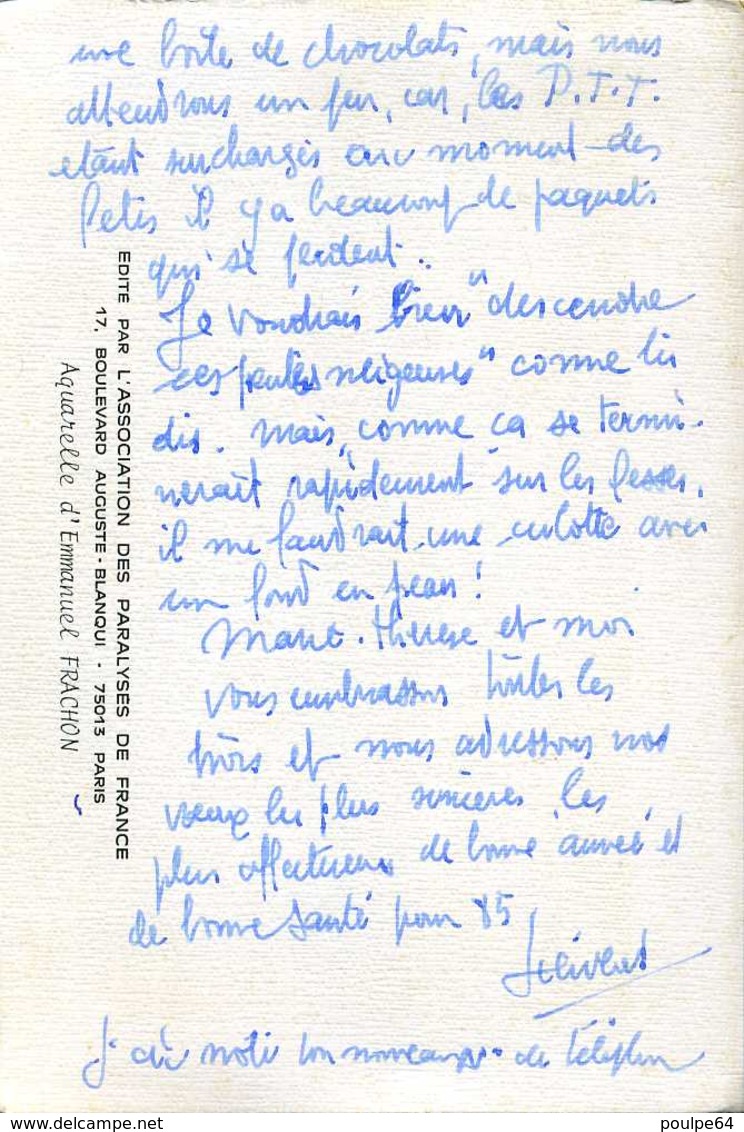 une boîte de chocolats, mais nous
attendrons un peu, car, les P.T.T.
étant surchargés au moment des
fetes il y a beaucoup de paquets
qui se perdent.
Je voudrais bien "descendre
ces pentes neigeuses" comme tu
dis. Mais, comme ça se termi-
nerait rapidement sur les fesses,
il me faudrait une culotte avec
un fond en peau!
Marie-Thérèse et moi
vous embrassons toutes les
trois et nous adressons nos
vœux les plus sincères, les
plus affectueux de bonne année et
de bonne santé pour 85
J'ai noté ton nouveau de téléphone
EDITE PAR L'ASSOCIATION DES PARALYSES DE FRANCE
17, BOULEVARD AUGUSTE-BLANQUI - 75013 PARIS
Aquarelle d'Emmanuel FRACHON
delcampe.net
poulpe64